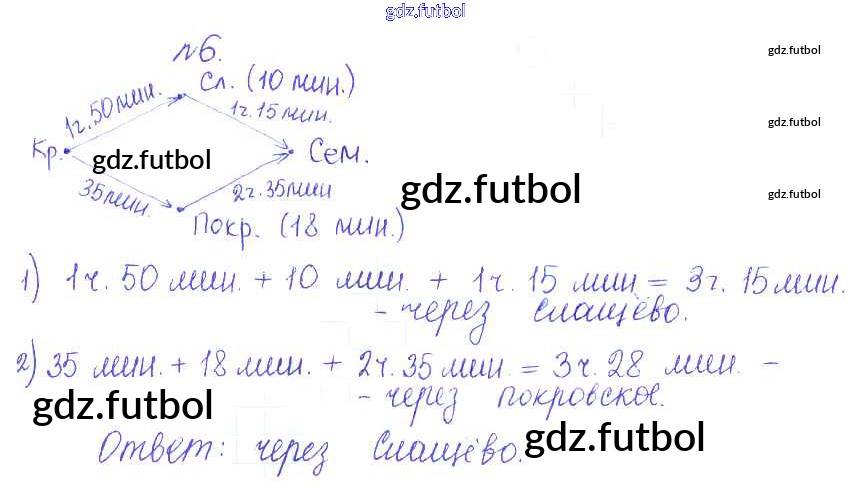 gdz.futbol
№6.
gdz.futbol
Сл. (10 мин.)
1ч. 50 мин.
1ч. 15 мин.
gdz.futbol
Кр.
gdz.futbol
Сем.
gdz.futbol
gdz.futbol
35 мин.
2ч. 35 мин
Покр. (18 мин.)
1) 1ч. 50 мин. + 10 мин. + 1ч. 15 мин = 3ч. 15 мин.
- через Слащёво.
2) 35 мин. + 18 мин. + 2ч. 35 мин. = 3ч. 28 мин. -
- через Покровское.
gdz.futbol
Ответ: через Слащёво.
gdz.futbol